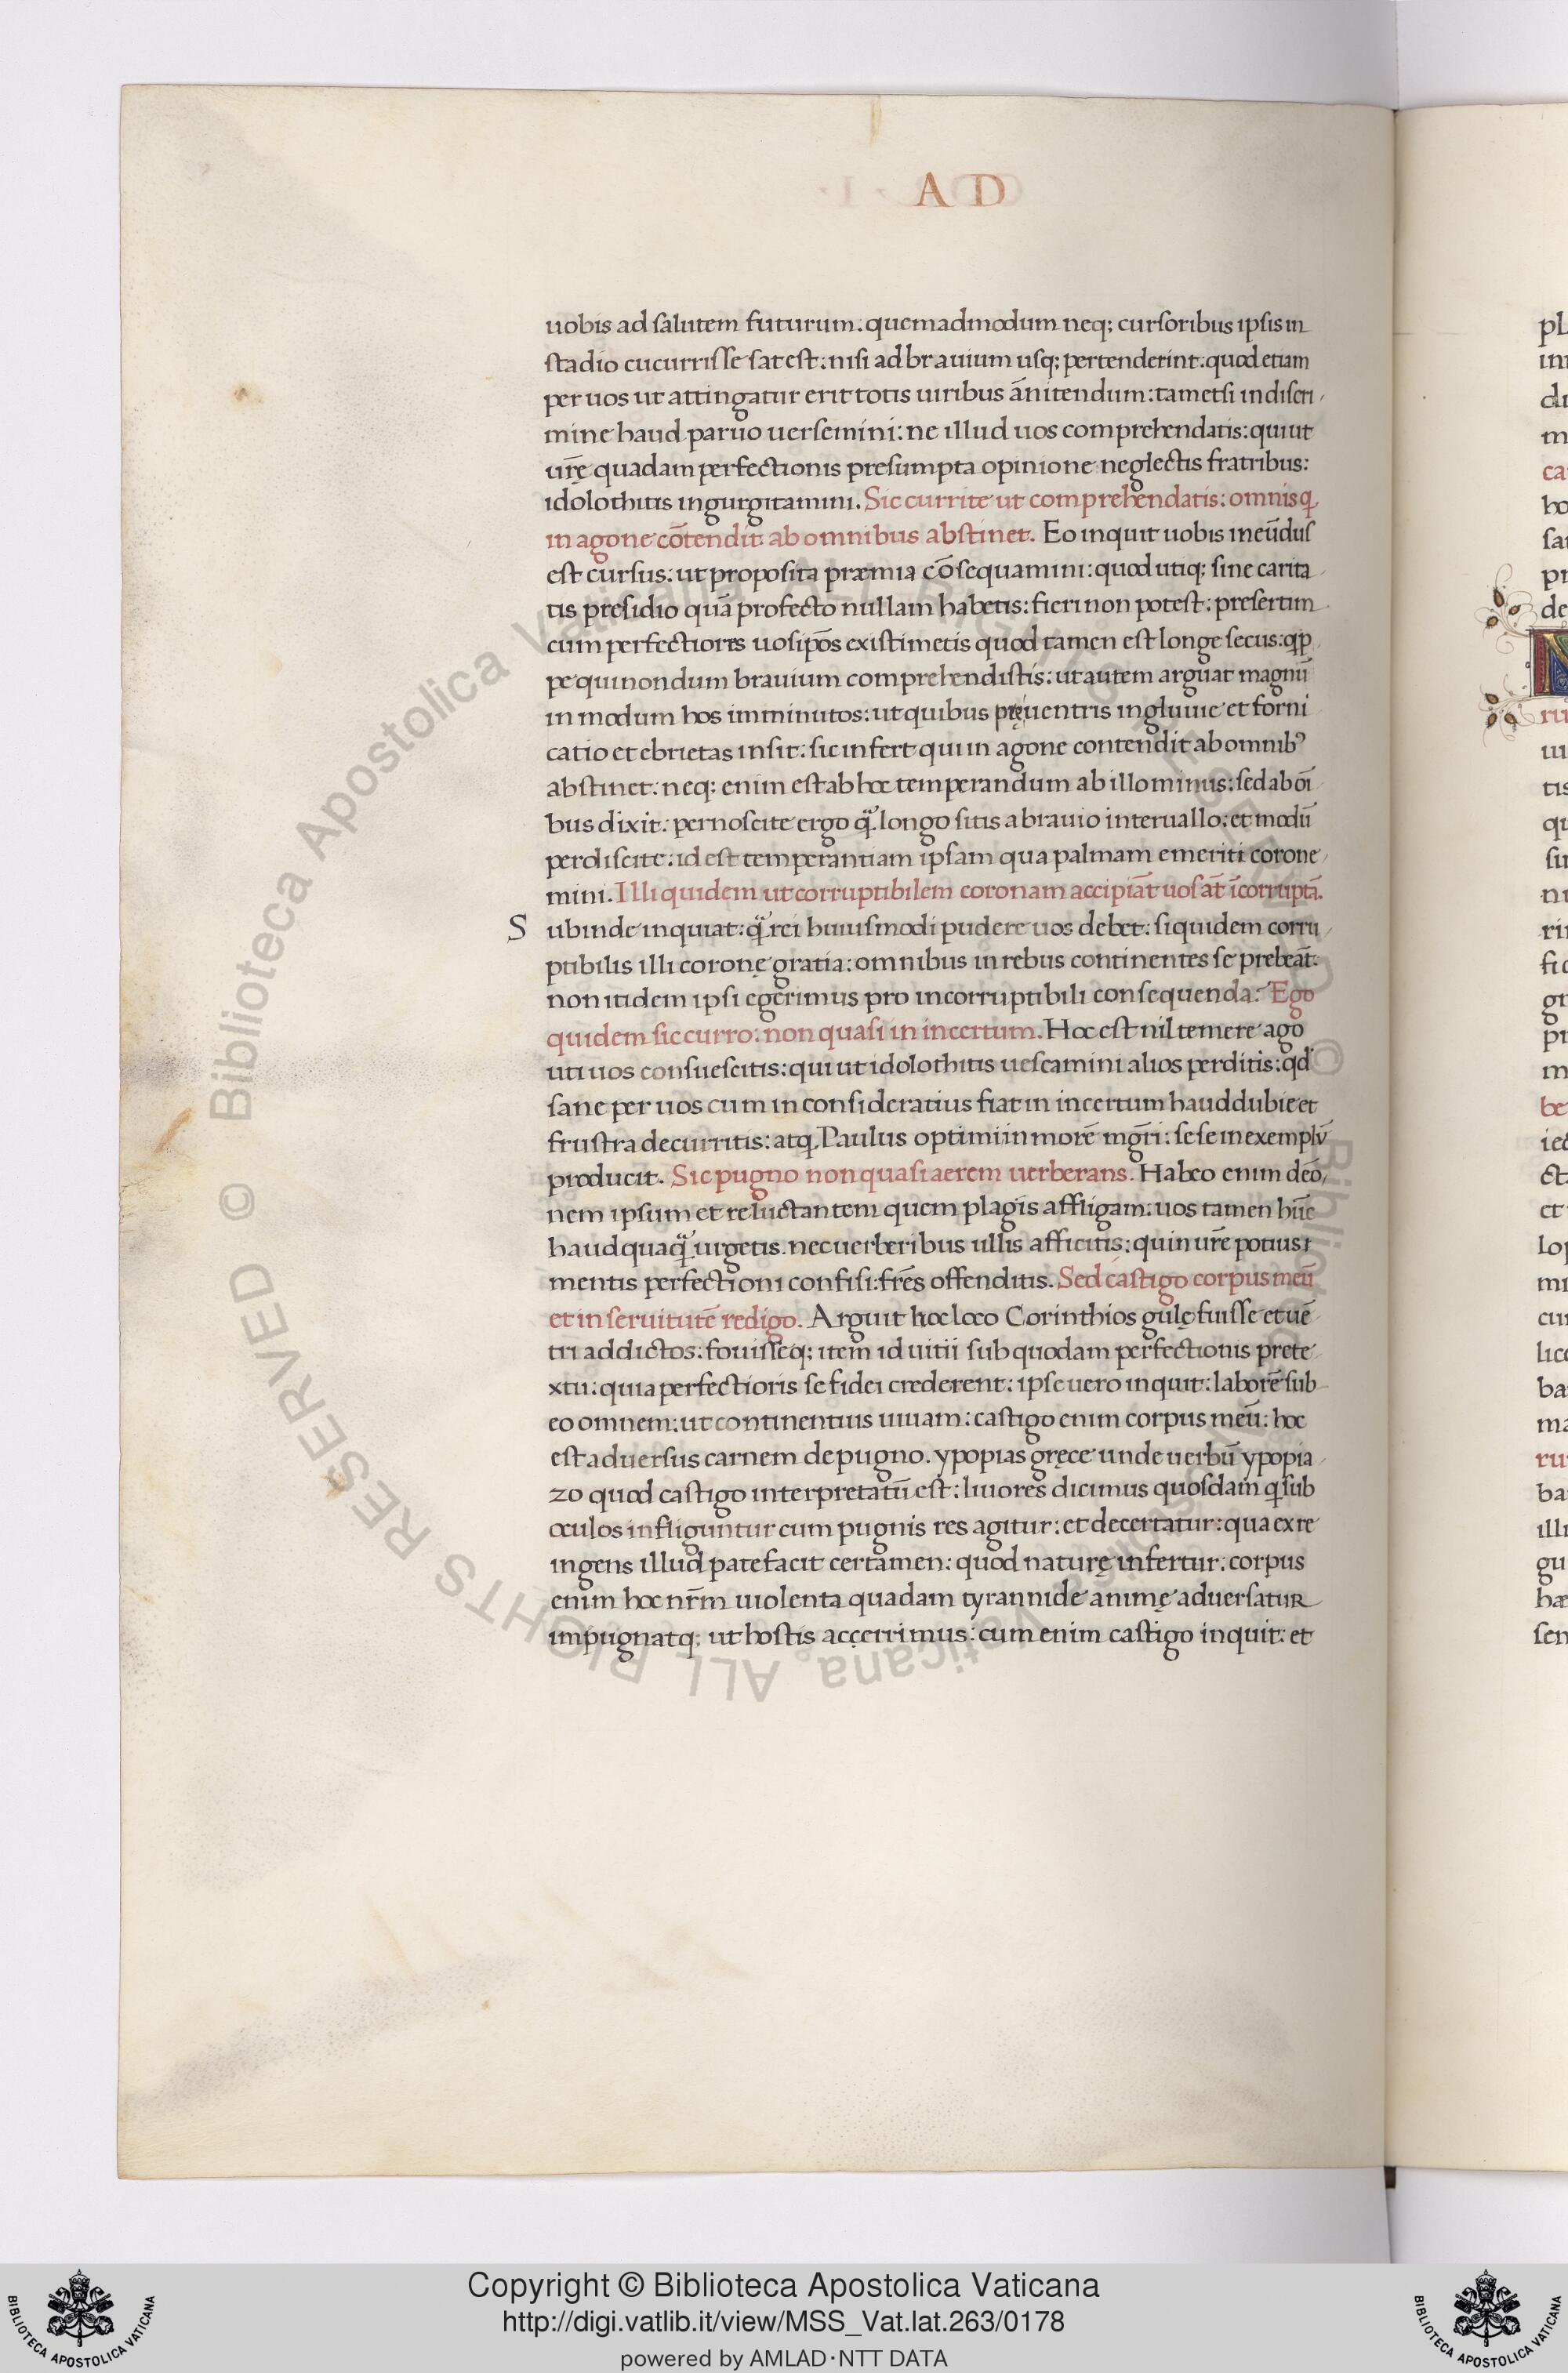 AD
uobis ad salutem futurum. quemadmodum neq; cursoribus ipsis in
stadio cucurrisse sat est: nisi ad brauium usq; pertenderint: quod etiam
per uos ut attingatur erit totis uiribus ānitendum: tametsi in discri
mine haud paruo uersemini: ne illud uos comprehendatis: qui ut
ur̄ę quadam perfectionis presumpta opinione neglectis fratribus:
idolothitis ingurgitamini. Sic currite ut comprehendatis: omnisq
in agone cōtendit ab omnibus abstinet. Eo inquit uobis ineūdus
est cursus: ut proposita præmia cōsequamini: quod utiq; sine carita
tis presidio quā profecto nullam habetis: fieri non potest: presertim
cum perfectiores uosipōs existimetis quod tamen est longe secus: qp
pe qui nondum brauium comprehendistis: ut autem arguat magnū
in modum hos imminutos: ut quibus pręuentris ingluuie et forni
catio et ebrietas insit: sic infert qui in agone contendit ab omnibꝰ
abstinet: neq; enim est ab hoc temperandum ab illo minus: sed ab oī
bus dixit: pernoscite ergo q̄ longo sitis a brauio interuallo: et modū
perdiscite: id est temperantiam ipsam qua palmam emeriti corone
mini. Illi quidem ut corruptibilem coronam accipiāt uos āt īcorruptā.
Subinde inquiat: q̄ rei huiusmodi pudere uos debet: siquidem corru
ptibilis illi coronę gratia: omnibus in rebus continentes se prebeāt:
non itidem ipsi egerimus pro incorruptibili consequenda: Ego
quidem sic curro: non quasi in incertum. Hoc est nil temere ago
uti uos consuescitis: qui ut idolothitis uescamini alios perditis: qd
sane per uos cum inconsideratius fiat in incertum haud dubie et
frustra decurritis: atq Paulus optimi in morē mḡri: sese in exemplū
producit. Sic pugno non quasi aerem uerberans. Habeo enim deō
nem ipsum et reluctantem quem plagis affligam: uos tamen hūc
haud quaq̄ urgetis. nec uerberibus ullis afficitis: quin ur̄ę potius
mentis perfectioni confisi: frēs offenditis. Sed castigo corpus meū
et in seruitutē redigo. Arguit hoc loco Corinthios gulę fuisse et uē
tri addictos: fouisseq; item id uitii sub quodam perfectionis prete
xtu: quia perfectioris se fidei crederent: ipse uero inquit: laborē sub
eo omnem: ut continentius uiuam: castigo enim corpus meū: hoc
est aduersus carnem depugno. ypopias gręce unde uerbū ypopia
zo quod castigo interpretatū est: liuores dicimus quosdam q sub
oculos infliguntur cum pugnis res agitur: et decertatur: qua ex re
ingens illud patefacit certamen: quod naturę infertur: corpus
enim hoc nr̄m uiolenta quadam tyrannide animę aduersatur
impugnatq; ut hostis accerrimus: cum enim castigo inquit: et
Copyright © Biblioteca Apostolica Vaticana
http://digi.vatlib.it/view/MSS_Vat.lat.263/0178
powered by AMLAD·NTT DATA